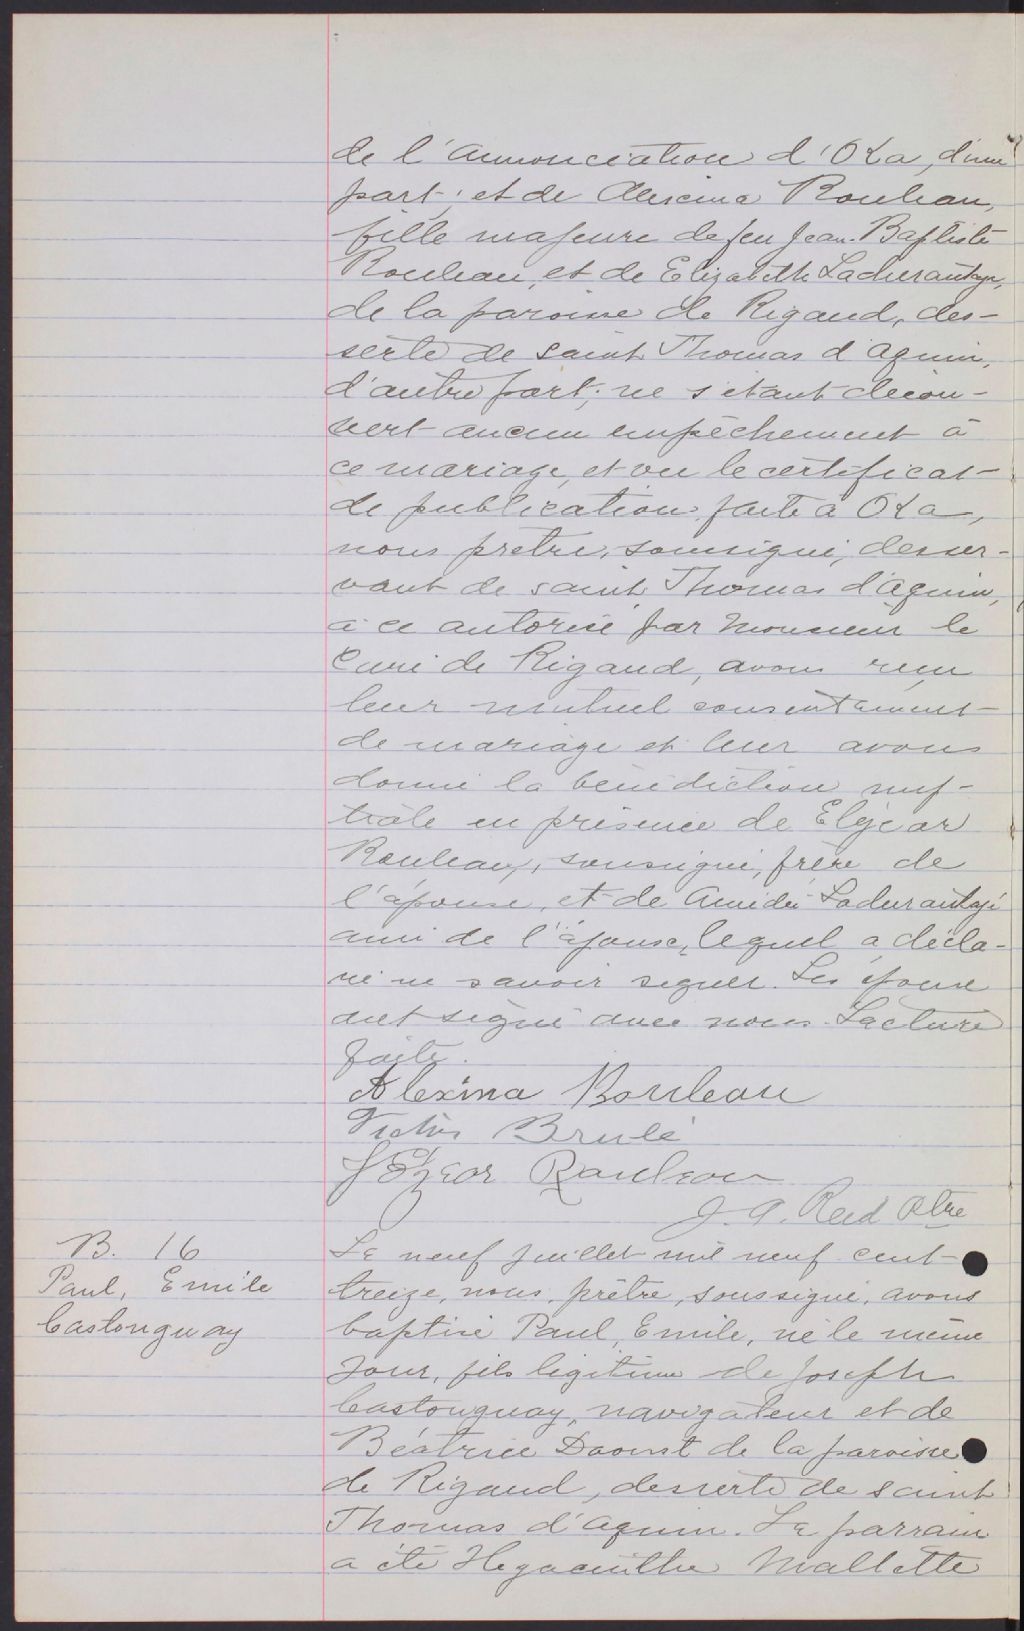 de l'Annonciation d'Oka, d'une
part; et de Alexina Rouleau,
fille majeure de feu Jean-Baptiste
Rouleau, et de Elizabeth Ladurantaye,
de la paroisse de Rigaud, des-
serte de saint Thomas d'Aquin,
d'autre part; ne s'étant décou-
vert aucun empêchement à
ce mariage, et vu le certificat
de publication faite à Oka,
nous prêtre, soussigné, desser-
vant de saint Thomas d'Aquin,
à ce autorisé par Monsieur le
Curé de Rigaud, avons reçu
leur mutuel consentement
de mariage et leur avons
donné la bénédiction nup-
tiale en présence de Elzéar
Rouleau, soussigné, frère de
l'épouse, et de Amédé Ladurantaye
ami de l'épouse, lequel a décla-
ré ne savoir signer. Les époux
ont signé avec nous. Lecture
faite.
Alexina Rouleau
Victor Brulé
J Elzear Rouleau
J. A. Reid Ptre
B. 16
Paul, Emile
Castonguay
Le neuf juillet mil neuf cent
treize, nous, prêtre, soussigné, avons
baptisé Paul, Emile, né le même
jour, fils légitime de Joseph
Castonguay, navigateur et de
Béatrice Daoust de la paroisse
de Rigaud, desserte de saint
Thomas d'Aquin. Le parrain
a été Hyacinthe Mallette